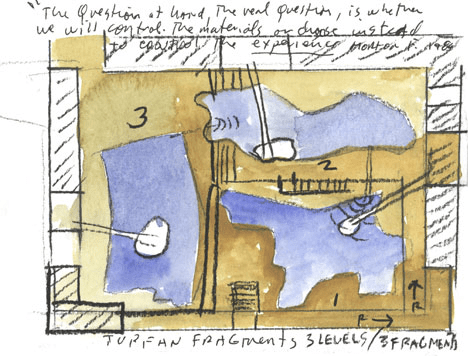 "The Question at hand, The real Question, is whether
we will control. The materials or choose instead
to control The experience Morton F. 1969
3
2
1
F →
R
TURFAN FRAGMENTS 3 LEVELS/3 FRAGMENTS